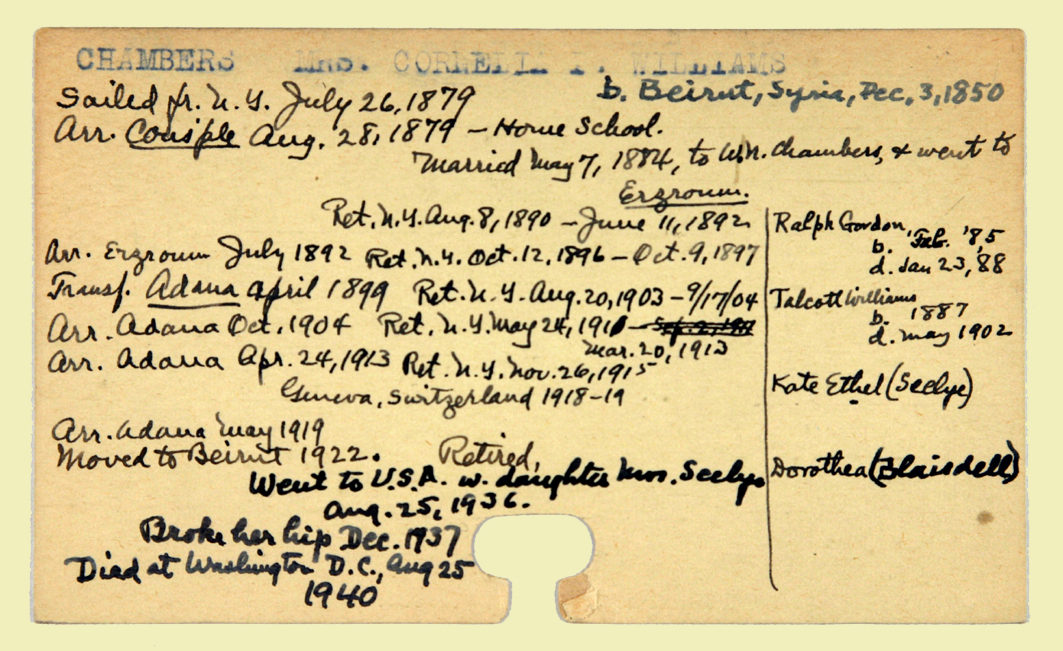 CHAMBERS MRS. CORNELIA P. WILLIAMS
b. Beirut, Syria, Dec. 3, 1850
Sailed fr. N.Y. July 26, 1879
Arr. Consple Aug. 28, 1879 – Home School.
Married May 7, 1884, to W.N. Chambers, & went to
Erzroum.
Ret. N.Y. Aug. 8, 1890 – June 11, 1892
Arr. Erzroum July 1892 Ret. N.Y. Oct. 12, 1896 – Oct. 9, 1897
Transf. Adana April 1899 Ret. N.Y. Aug. 20, 1903 – 9/17/04
Arr. Adana Oct. 1904 Ret. N.Y. May 24, 1910 –
Mar. 20, 1913
Arr. Adana Apr. 24, 1913 Ret. N.Y. Nov. 26, 1915
Geneva, Switzerland 1918–19
Arr. Adana May 1919
Moved to Beirut 1922. Retired.
Went to U.S.A. w. daughter Mrs. Seelye
Aug. 25, 1936.
Broke her hip Dec. 1937
Died at Washington D.C., Aug 25
1940
Ralph Gordon,
b. Feb. '85
d. Jan 23, '88
Talcott Williams
b. 1887
d. May 1902
Kate Ethel (Seelye)
Dorothea (Blaisdell)